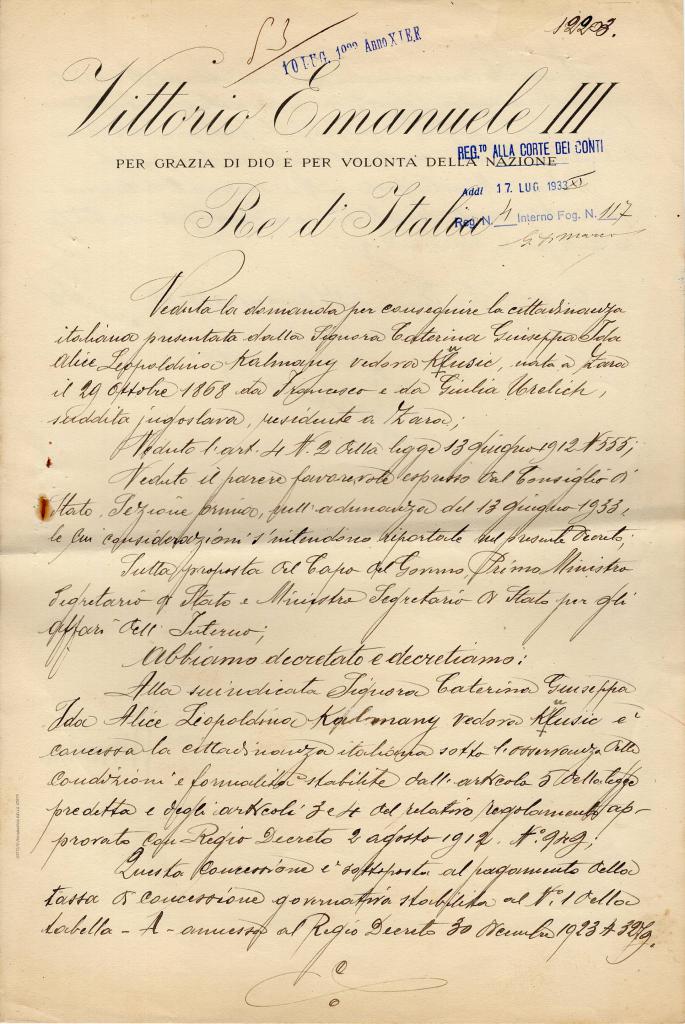 53
12223.
10 LUG. 1933 Anno XI E.F.
Vittorio Emanuele III
PER GRAZIA DI DIO E PER VOLONTÀ DELLA NAZIONE
REG.TO ALLA CORTE DEI CONTI
Addì 17 LUG 1933 XI
Re d'Italia
Reg. N. 4 Interno Fog. N. 117
Veduta la domanda per conseguire la cittadinanza
italiana presentata dalla Signora Caterina Giuseppa Ida
Alice Leopoldina Kalmany vedova, nata a Zara
il 29 ottobre 1868 da Francesco e da Giulia Urelich,
suddita jugoslava, residente a Zara;
Veduto l'art. 4 N. 2 della legge 13 giugno 1912 N 555;
Veduto il parere favorevole espresso dal Consiglio di
Stato, Sezione prima, nell'adunanza del 13 giugno 1933,
le cui considerazioni s'intendono riportate nel presente Decreto;
Sulla proposta del Capo del Governo, Primo Ministro
Segretario di Stato e Ministro Segretario di Stato per gli
affari dell'Interno;
Abbiamo decretato e decretiamo:
Alla suindicata Signora Caterina Giuseppa
Ida Alice Leopoldina Kalmany vedova è
concessa la cittadinanza italiana sotto l'osservanza delle
condizioni e formalità stabilite dall'articolo 5 della legge
predetta e degli articoli 3 e 4 del relativo regolamento ap-
provato con Regio Decreto 2 agosto 1912. N° 949;
Questa concessione è sottoposta al pagamento della
tassa di concessione governativa stabilita al N° 1 della
tabella - A - annessa al Regio Decreto 30 dicembre 1923 N 3279.